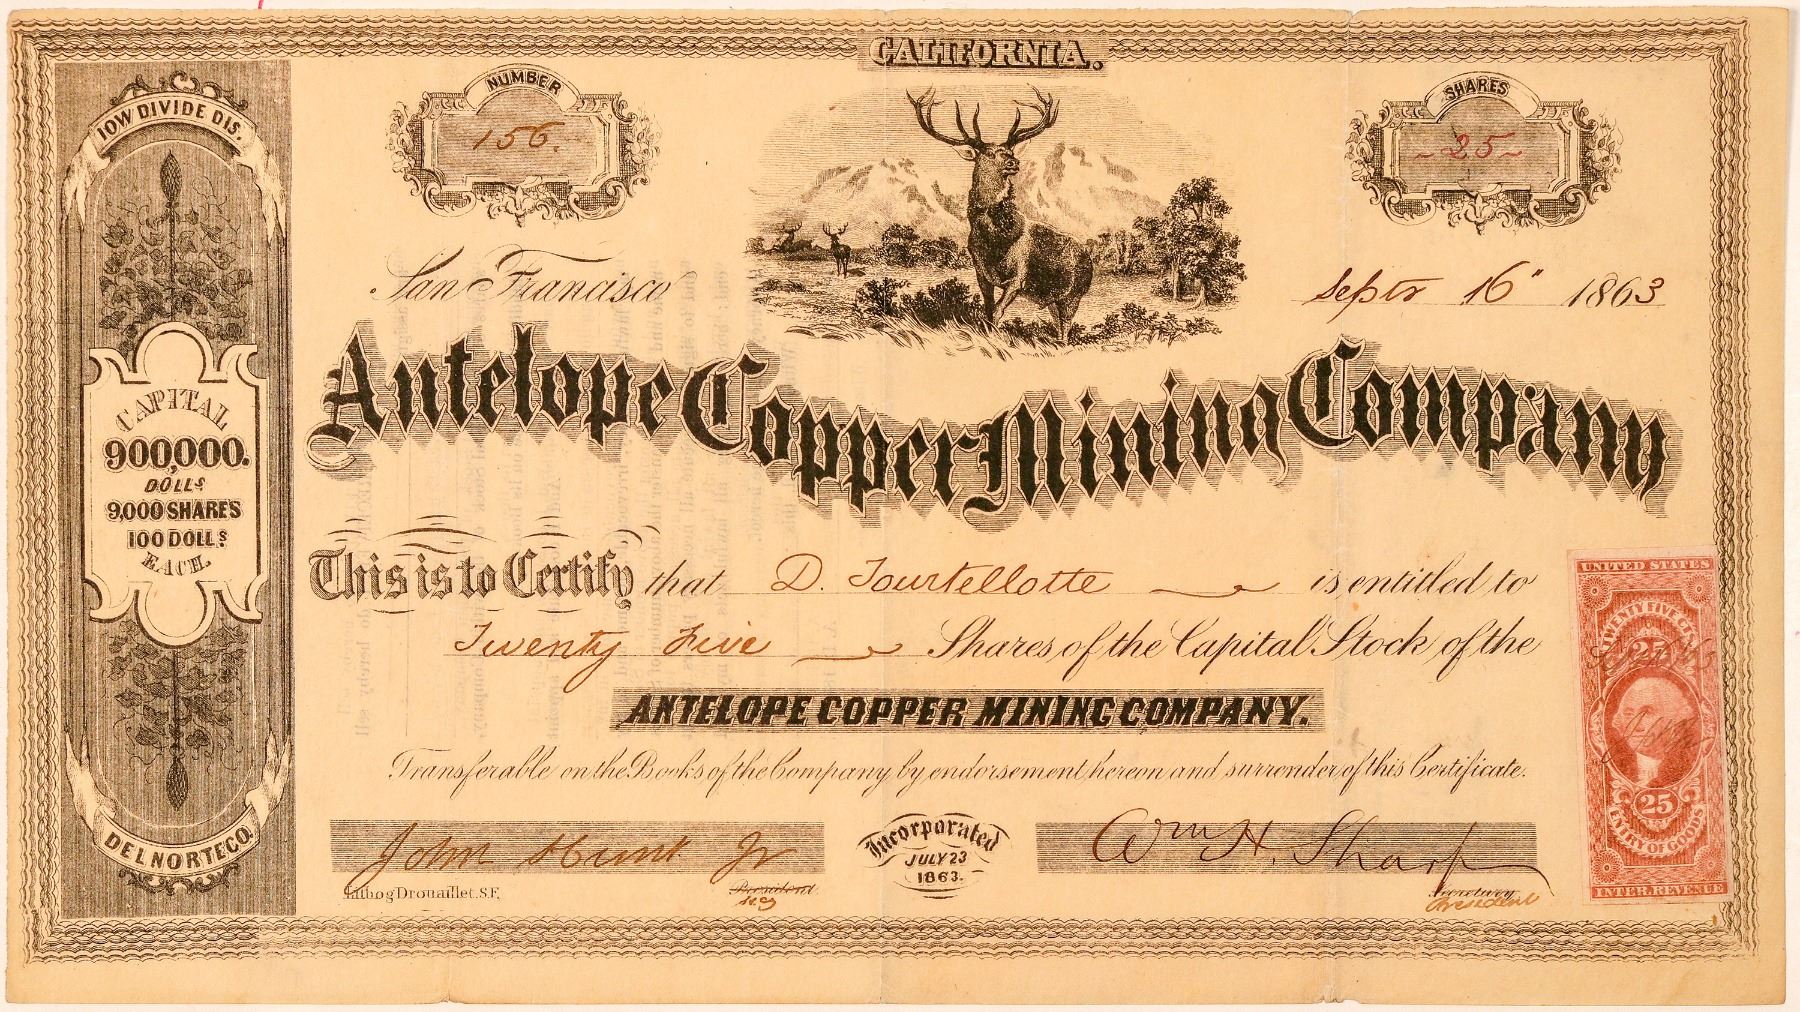 CALIFORNIA.
LOW DIVIDE DIS.
NUMBER
156.
SHARES
25
San Francisco Septr 16" 1863
Antelope Copper Mining Company
CAPITAL
900,000.
DOLLS
9,000 SHARES
100 DOLLS
EACH.
This is to Certify that D. Tourtellotte is entitled to
Twenty Five Shares of the Capital Stock of the
ANTELOPE COPPER MINING COMPANY.
Transferable on the Books of the Company by endorsement hereon and surrender of this Certificate.
DEL NORTE CO.
John Hunt Jr
Wm H. Sharp
Incorporated
JULY 23
1863.
Lithog Drouaillet. S.F.
President
Secy
Secretary
President
UNITED STATES
TWENTY FIVE CTS
25
25
ENTRY OF GOODS
INTER. REVENUE